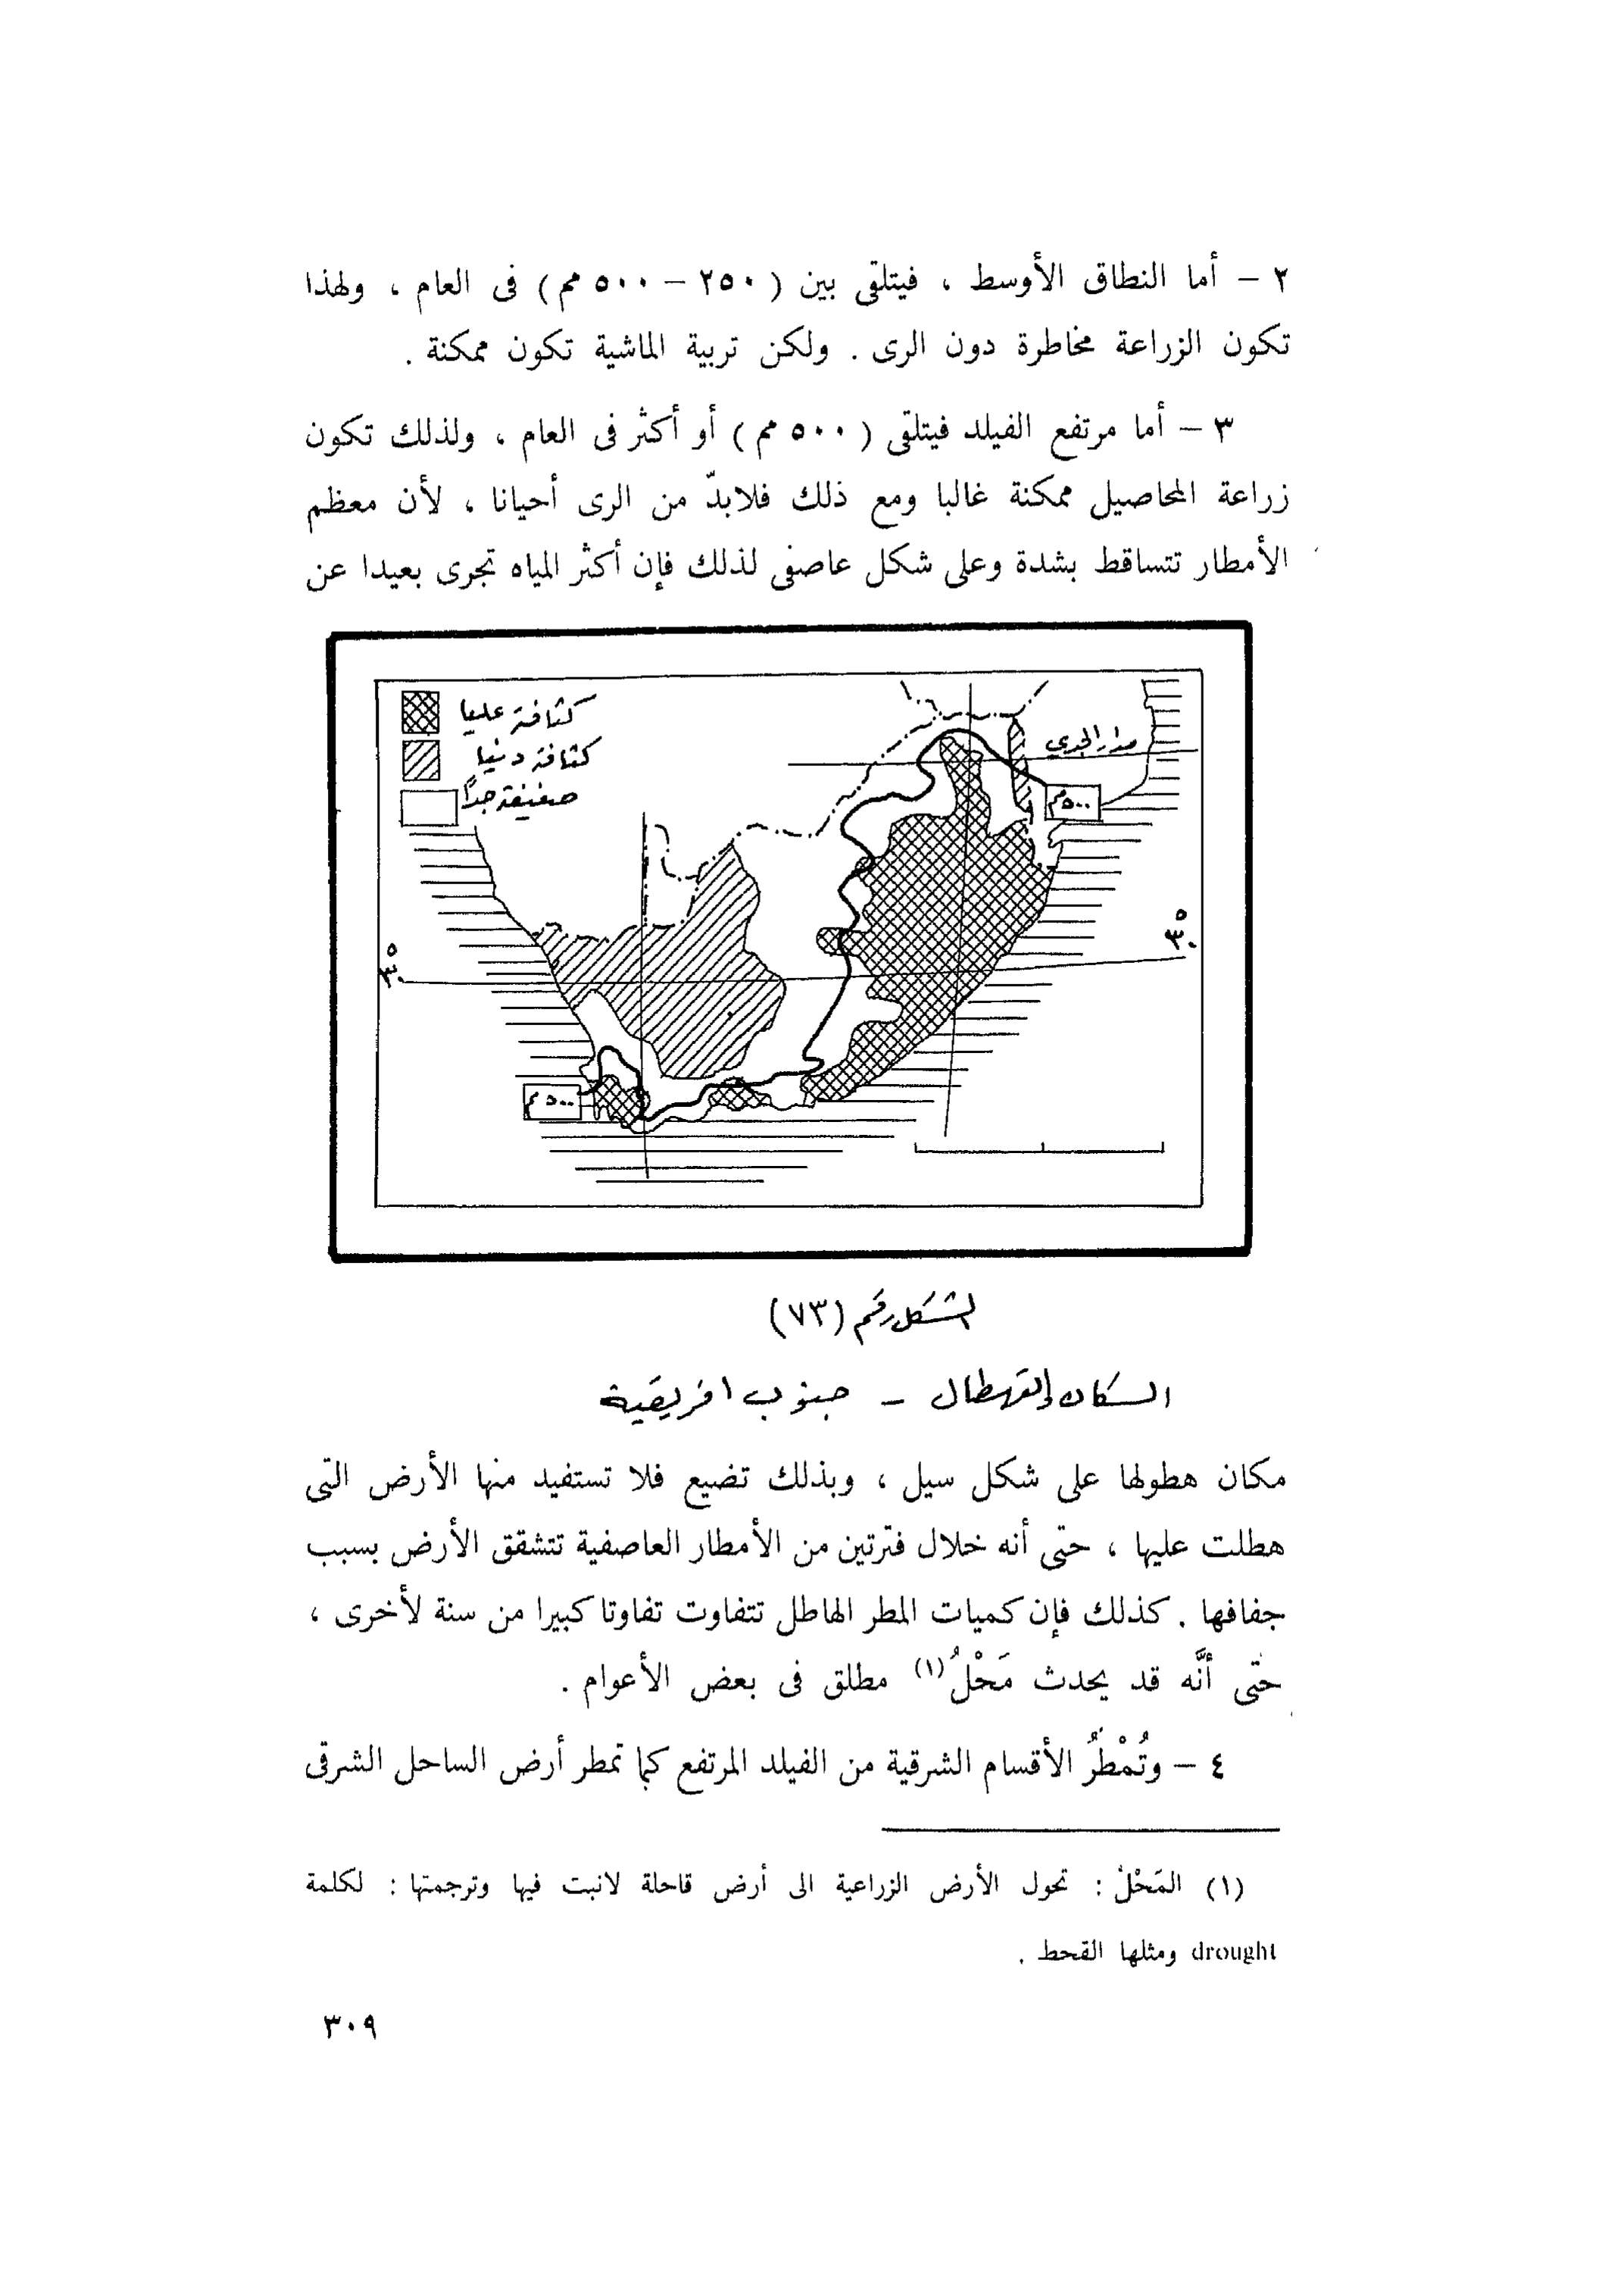 ٢ – أما النطاق الأوسط ، فيتلقى بين ( ٢٥٠ – ٥٠٠ مم ) فى العام ، ولهذا
تكون الزراعة مخاطرة دون الرى . ولكن تربية الماشية تكون ممكنة .
٣ – أما مرتفع الفيلد فيتلقى ( ٥٠٠ مم ) أو أكثر فى العام ، ولذلك تكون
زراعة المحاصيل ممكنة غالبا ومع ذلك فلابدّ من الرى أحيانا ، لأن معظم
الأمطار تتساقط بشدة وعلى شكل عاصفى لذلك فإن أكثر المياه تجرى بعيدا عن
كثافة عليا
كثافة دنيا
ضعيفة جداً
مدار الجدي
٥٠٠ مم
٣٠°
٣٠°
٥٠٠ مم
الشكل رقم (٧٣)
السكان والتهطال – جنوب افريقية
مكان هطولها على شكل سيل ، وبذلك تضيع فلا تستفيد منها الأرض التى
هطلت عليها ، حتى أنه خلال فترتين من الأمطار العاصفية تتشقق الأرض بسبب
جفافها . كذلك فإن كميات المطر الهاطل تتفاوت تفاوتا كبيرا من سنة لأخرى ،
حتى أنَّه قد يحدث مَحْلُ(١) مطلق فى بعض الأعوام .
٤ – وتُمْطَرُ الأقسام الشرقية من الفيلد المرتفع كما تمطر أرض الساحل الشرقى
(١) المَحْلُ : تحول الأرض الزراعية الى أرض قاحلة لانبت فيها وترجمتها : لكلمة
drought ومثلها القحط .
٣٠٩